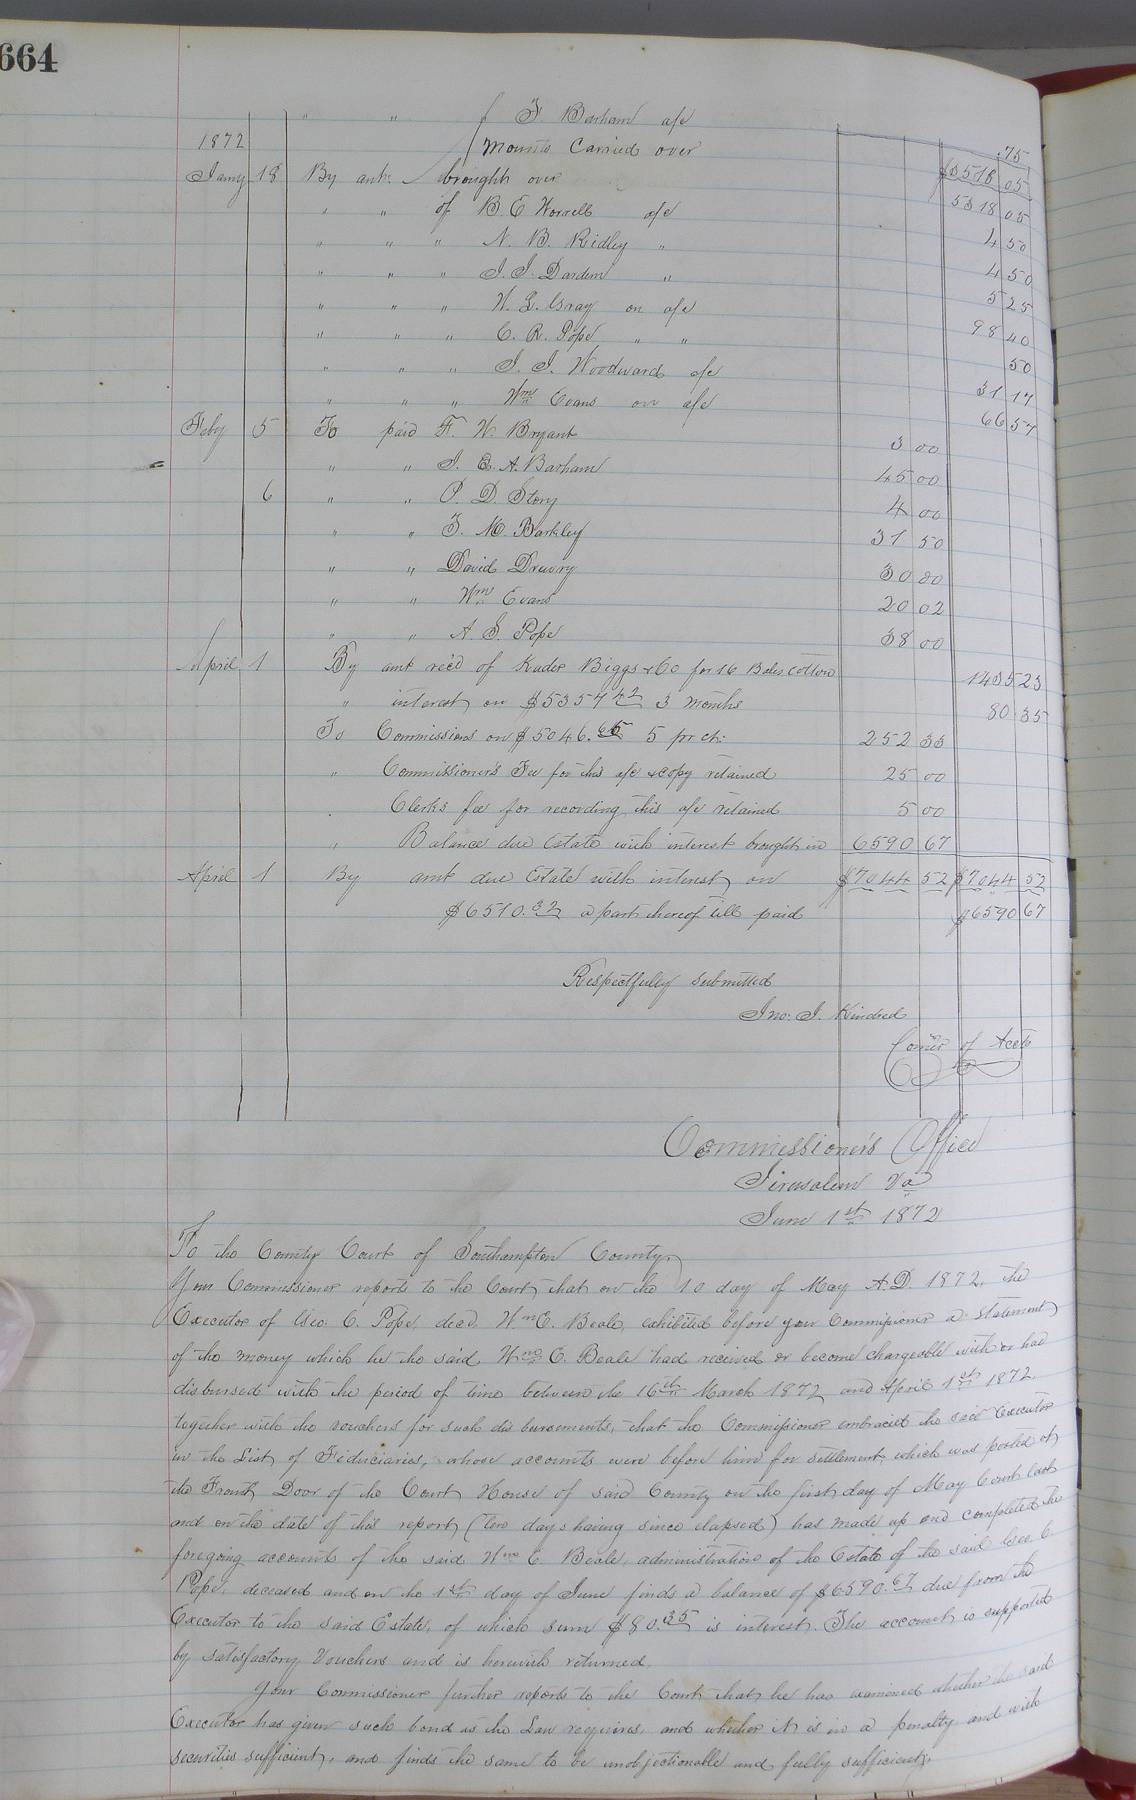 664
" " { F Barham a/c .75
1872 { Mounts Carried over $5318 05
Jany 18 By amt. brought over 5318 05
" " of B. E Worrell a/c 4 50
" " " N. B. Ridley " 4 50
" " " J. J. Darden " 5 25
" " " W. L. Gray on a/c 98 40
" " " C. R. Pope " " 50
" " " J. J. Woodward a/c 31 17
" " " Wm Evans on a/c 66 57
Feby 5 To paid F. W. Bryant 3 00
" " J. E. A. Barham 45 00
6 " " P. D. Story 4 00
" " T. M. Barkley 31 50
" " David Drewry 30 00
" " Wm Evans 20 02
" " A. S. Pope 38 00
April 1 By amt rec'd of Kader Biggs & Co for 16 Bales cotton 1435 23
" interest on $5357 42 3 months 80 35
To Commissions on $5046.65 5 pr ct: 252 33
" Commissioner's Fee for this a/c & copy retained 25 00
" Clerks fee for recording this a/c retained 5 00
" Balance due Estate with interest brought in 6590 67
April 1 By amt due Estate with interest on $7044 52 $7044 52
$6510.32 a part thereof till paid $6590 67
Respectfully submitted
Jno: J. Kindred
Com'r of Accts
Commissioner's Office
Jerusalem Va
June 1st 1872
To the County Court of Southampton County,
Your Commissioner reports to the Court, that on the 10 day of May A.D. 1872, the
Executor of Geo: C. Pope, decd, Wm E. Beale, exhibited before your Commissioner a statement
of the money which he the said Wm E. Beale had received or become chargeable with or had
disbursed with the period of time between the 16th March 1872 and April 1st 1872.
together with the vouchers for such disbursements, that the Commissioner embraced the said Executor
in the List of Fiduciaries, whose accounts were before him for settlement, which was posted at
the Front Door of the Court House of said County on the first day of May Court last
and on the date of this report (ten days having since elapsed) has made up and completed the
foregoing account of the said Wm E. Beale, administration of the Estate of the said Geo. C.
Pope, deceased and on the 1st day of June finds a balance of $6590.67 due from the
Executor to the said Estate, of which sum $80.35 is interest. The account is supported
by satisfactory Vouchers and is herewith returned.
Your Commissioner further reports to the Court that he has examined whether the said
Executor has given such bond as the Law requires, and whether it is in a penalty and with
securities sufficient, and finds the same to be unobjectionable and fully sufficient.